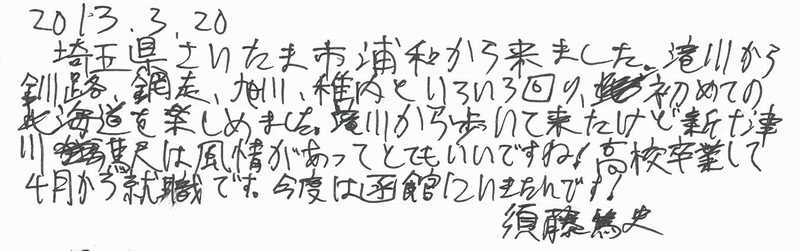 2013.3.20
埼玉県さいたま市浦和から来ました。滝川から
釧路、網走、旭川、稚内といろいろ回り、初めての
北海道を楽しめました。滝川から歩いて来たけど新十津
川駅は風情があってとてもいいですね！高校卒業して
4月から就職です。今度は函館にいきたいんです！
須藤篤史